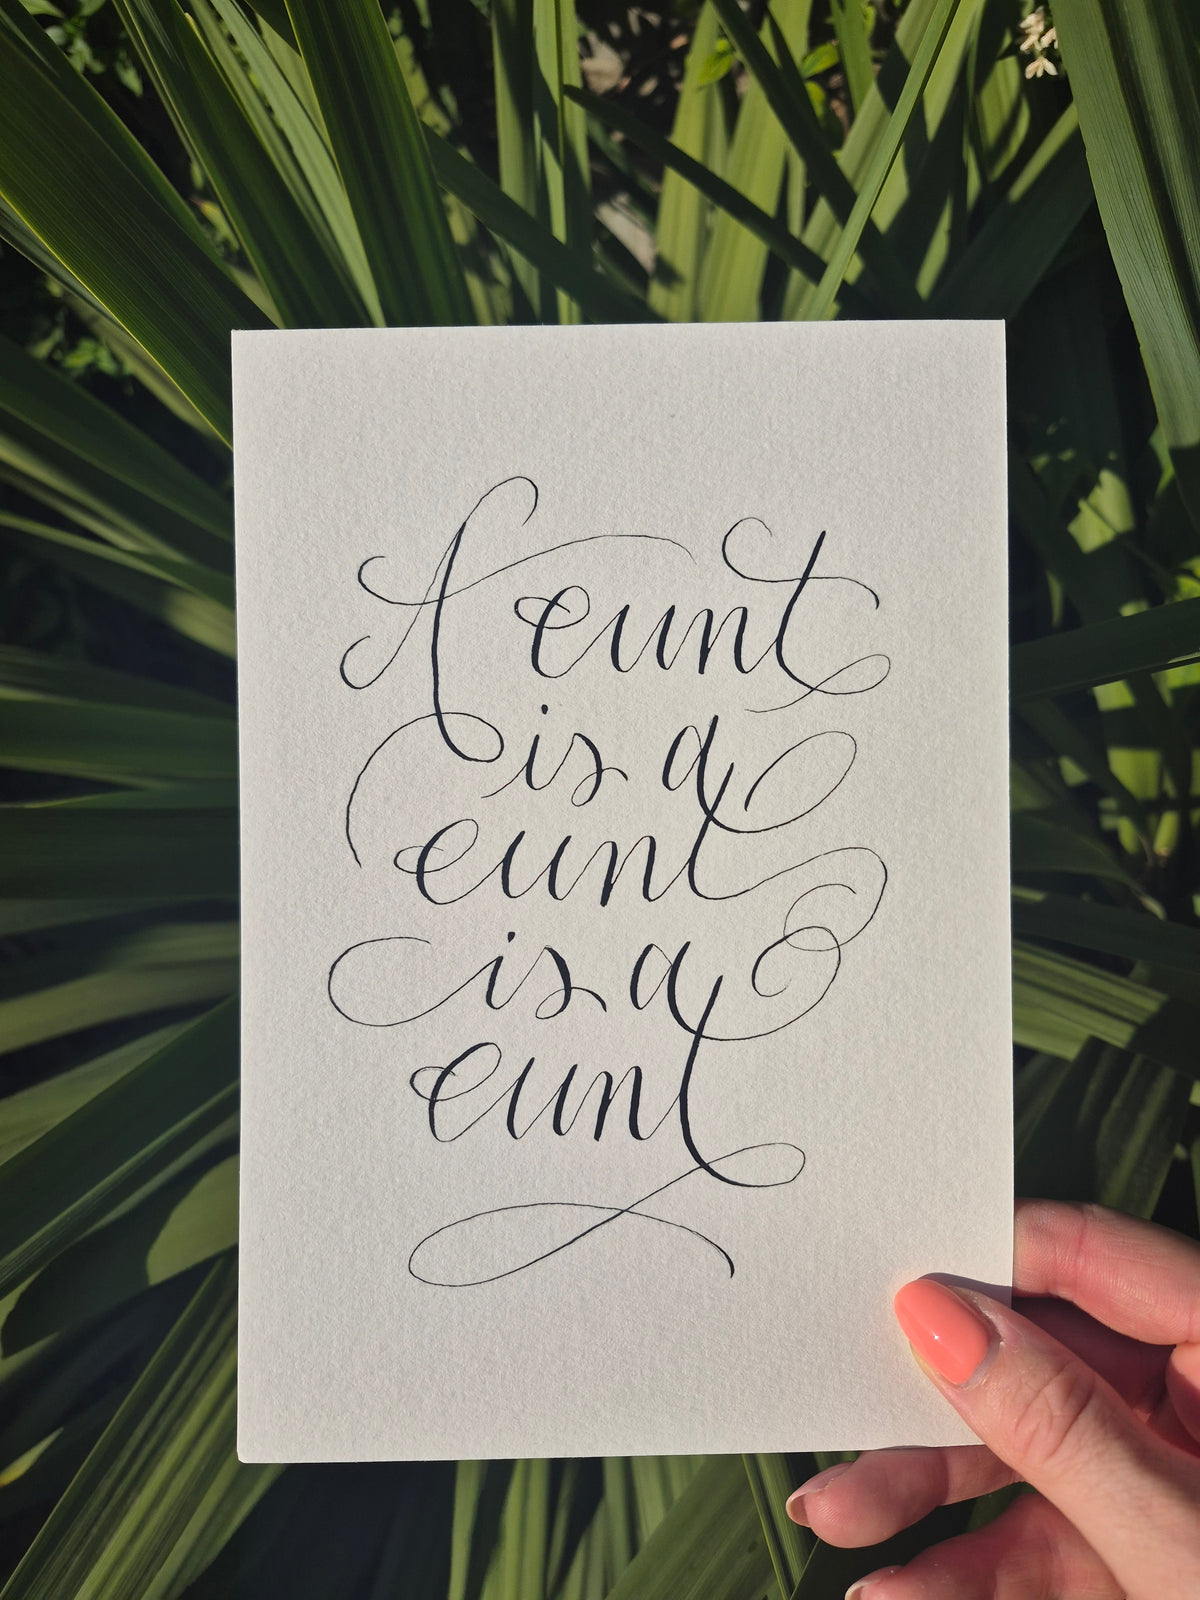 A eunt
is a
eunt
is a
eunt